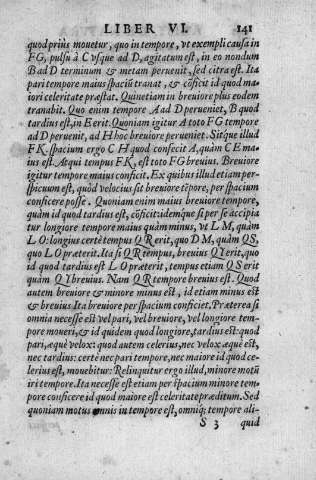 LIBER VI. 141
quod priùs mouetur, quo in tempore, vt exempli causa in
FG, pulsu à C vsque ad D, agitatum est, in eo nondum
B ad D terminum & metam peruenit, sed citra est. Ita
pari tempore maius spacium tranat, & cõficit id quod ma-
iori celeritate præstat. Quinetiam in breuiore plus eodem
tranabit. Quo enim tempore A ad D perueniet, B quod
tardius est, in E erit. Quoniam igitur A toto FG tempore
ad D peruenit, ad H hoc breuiore perueniet. Sitque illud
FK. spacium ergo CH quod confecit A, quàm CE ma-
ius est. At qui tempus FK, est toto FG breuius. Breuiore
igitur tempore maius conficit. Ex quibus illud etiam per-
spicuum est, quòd velocius sit breuiore tẽpore, per spacium
conficere posse. Quoniam enim maius breuiore tempore,
quàm id quod tardius est, cõficit: idemque si per se accipia
tur longiore tempore maius quàm minus, vt LM, quàm
LO: longius certè tempus QR erit, quo DM, quàm QS,
quo LO præterit. Ita si QR tempus, breuius QY erit, quo
id quod tardius est LO præterit, tempus etiam QS erit
quàm QY breuius. Nam QR tempore breuius est. Quod
autem breuiore & minore minus est, id etiam minus est
& breuius. Ita breuiore per spacium conficiet. Præterea si
omnia necesse est vel pari, vel breuiore, vel longiore tem-
pore moueri, & id quidem quod longiore, tardius est: quod
pari, æquè velox: quod autem celerius, nec velox æquè est,
nec tardius: certè nec pari tempore, nec maiore id quod ce-
lerius est, mouebitur: Relinquitur ergo illud, minore motũ
iri tempore. Ita necesse est etiam per spacium minore tem-
pore conficere id quod maior est celeritate præditum. Sed
quoniam motus omnis in tempore est, omniq; tempore ali-
S 3 quid